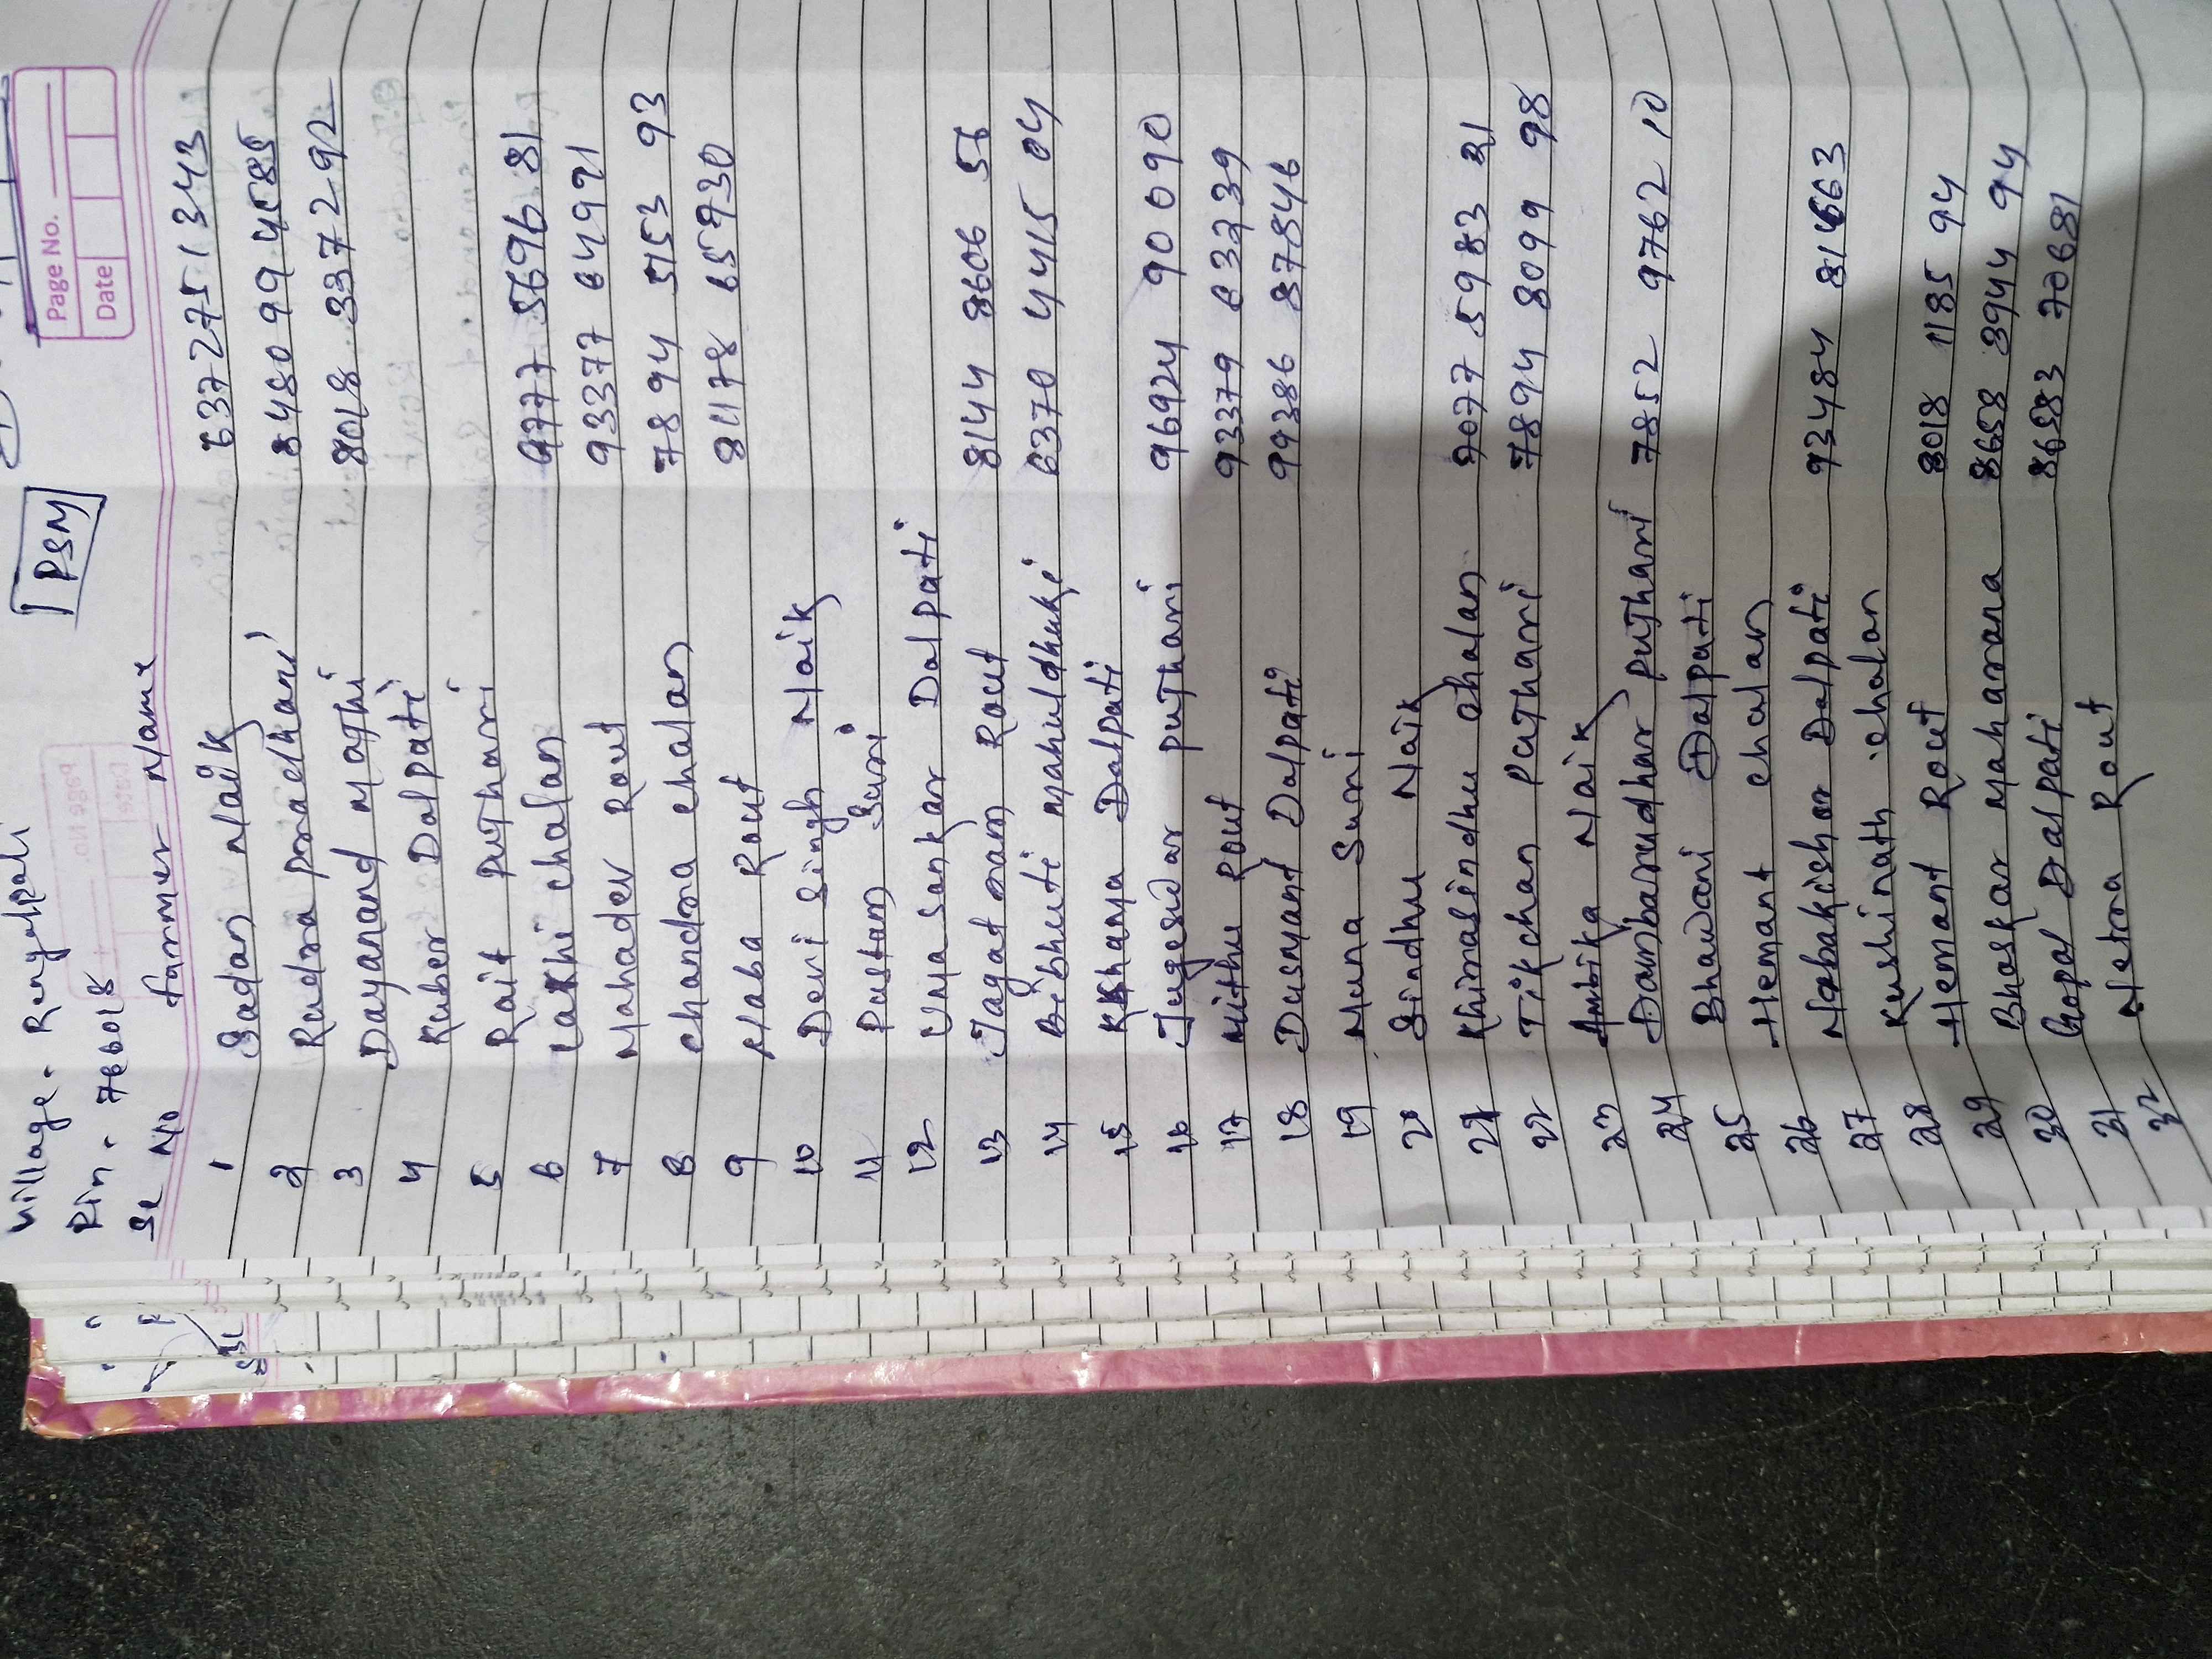 PSM
Page No.
Date
Village - Rengalpali
Pin - 766018
SL No Farmer Name
1 Sadan Naik 6372751343
2 Rudra pradhani
3 Dayanand Majhi 8018 3372 92
4 Kuber Dalpati
5 Rait pujhari
6 Lakhi chalan 9777 5696 81
7 Mahadev Rout 93377 64991
8 chandra chalan 7894 5153 93
9 Naba Rout 81178 65930
10 Devi singh Naik
11 Rustam Suni
12 Uma sankar Dalpati
13 Jagat ram Rout 8144 8606 56
14 Bibhuti mahuldhuki 6370 4415 04
15 Khanya Dalpati
16 Jugeswar pujhari 96924 90090
17 Mithu Rout 93379 63239
18 Dusmyant Dalpati 99386 87846
19 Muna Suni
20 Sindhu Naik
21 Khirasindhu chalan 9077 5983 21
22 Tikchan Pujhari 7894 8099 98
23 Ambika Naik
24 Dambarudhar pujhari 7852 9762 10
25 Bhawani Dalpati
26 Hemant chalan
27 Nabakishor Dalpati
28 Kushinath chalan
29 Hemant Rout 8018 1185 94
30 Bhaskar Maharana 8658 3944 94
31 Gopal Dalpati 86583 70681
32 Netra Rout